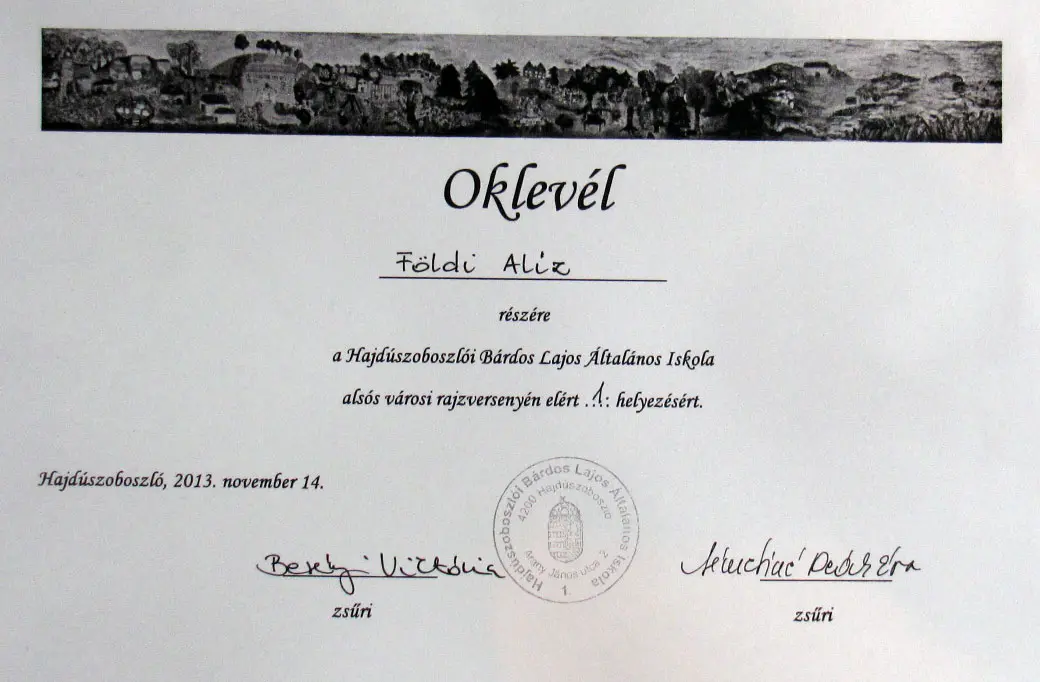 Oklevél
Földi Aliz
részére
a Hajdúszoboszlói Bárdos Lajos Általános Iskola
alsós városi rajzversenyén elért .1.: helyezésért.
Hajdúszoboszló, 2013. november 14.
Hajdúszoboszlói Bárdos Lajos Általános Iskola
4200 Hajdúszoboszló
Arany János utca 2
1.
Viktória
Éva
zsűri
zsűri